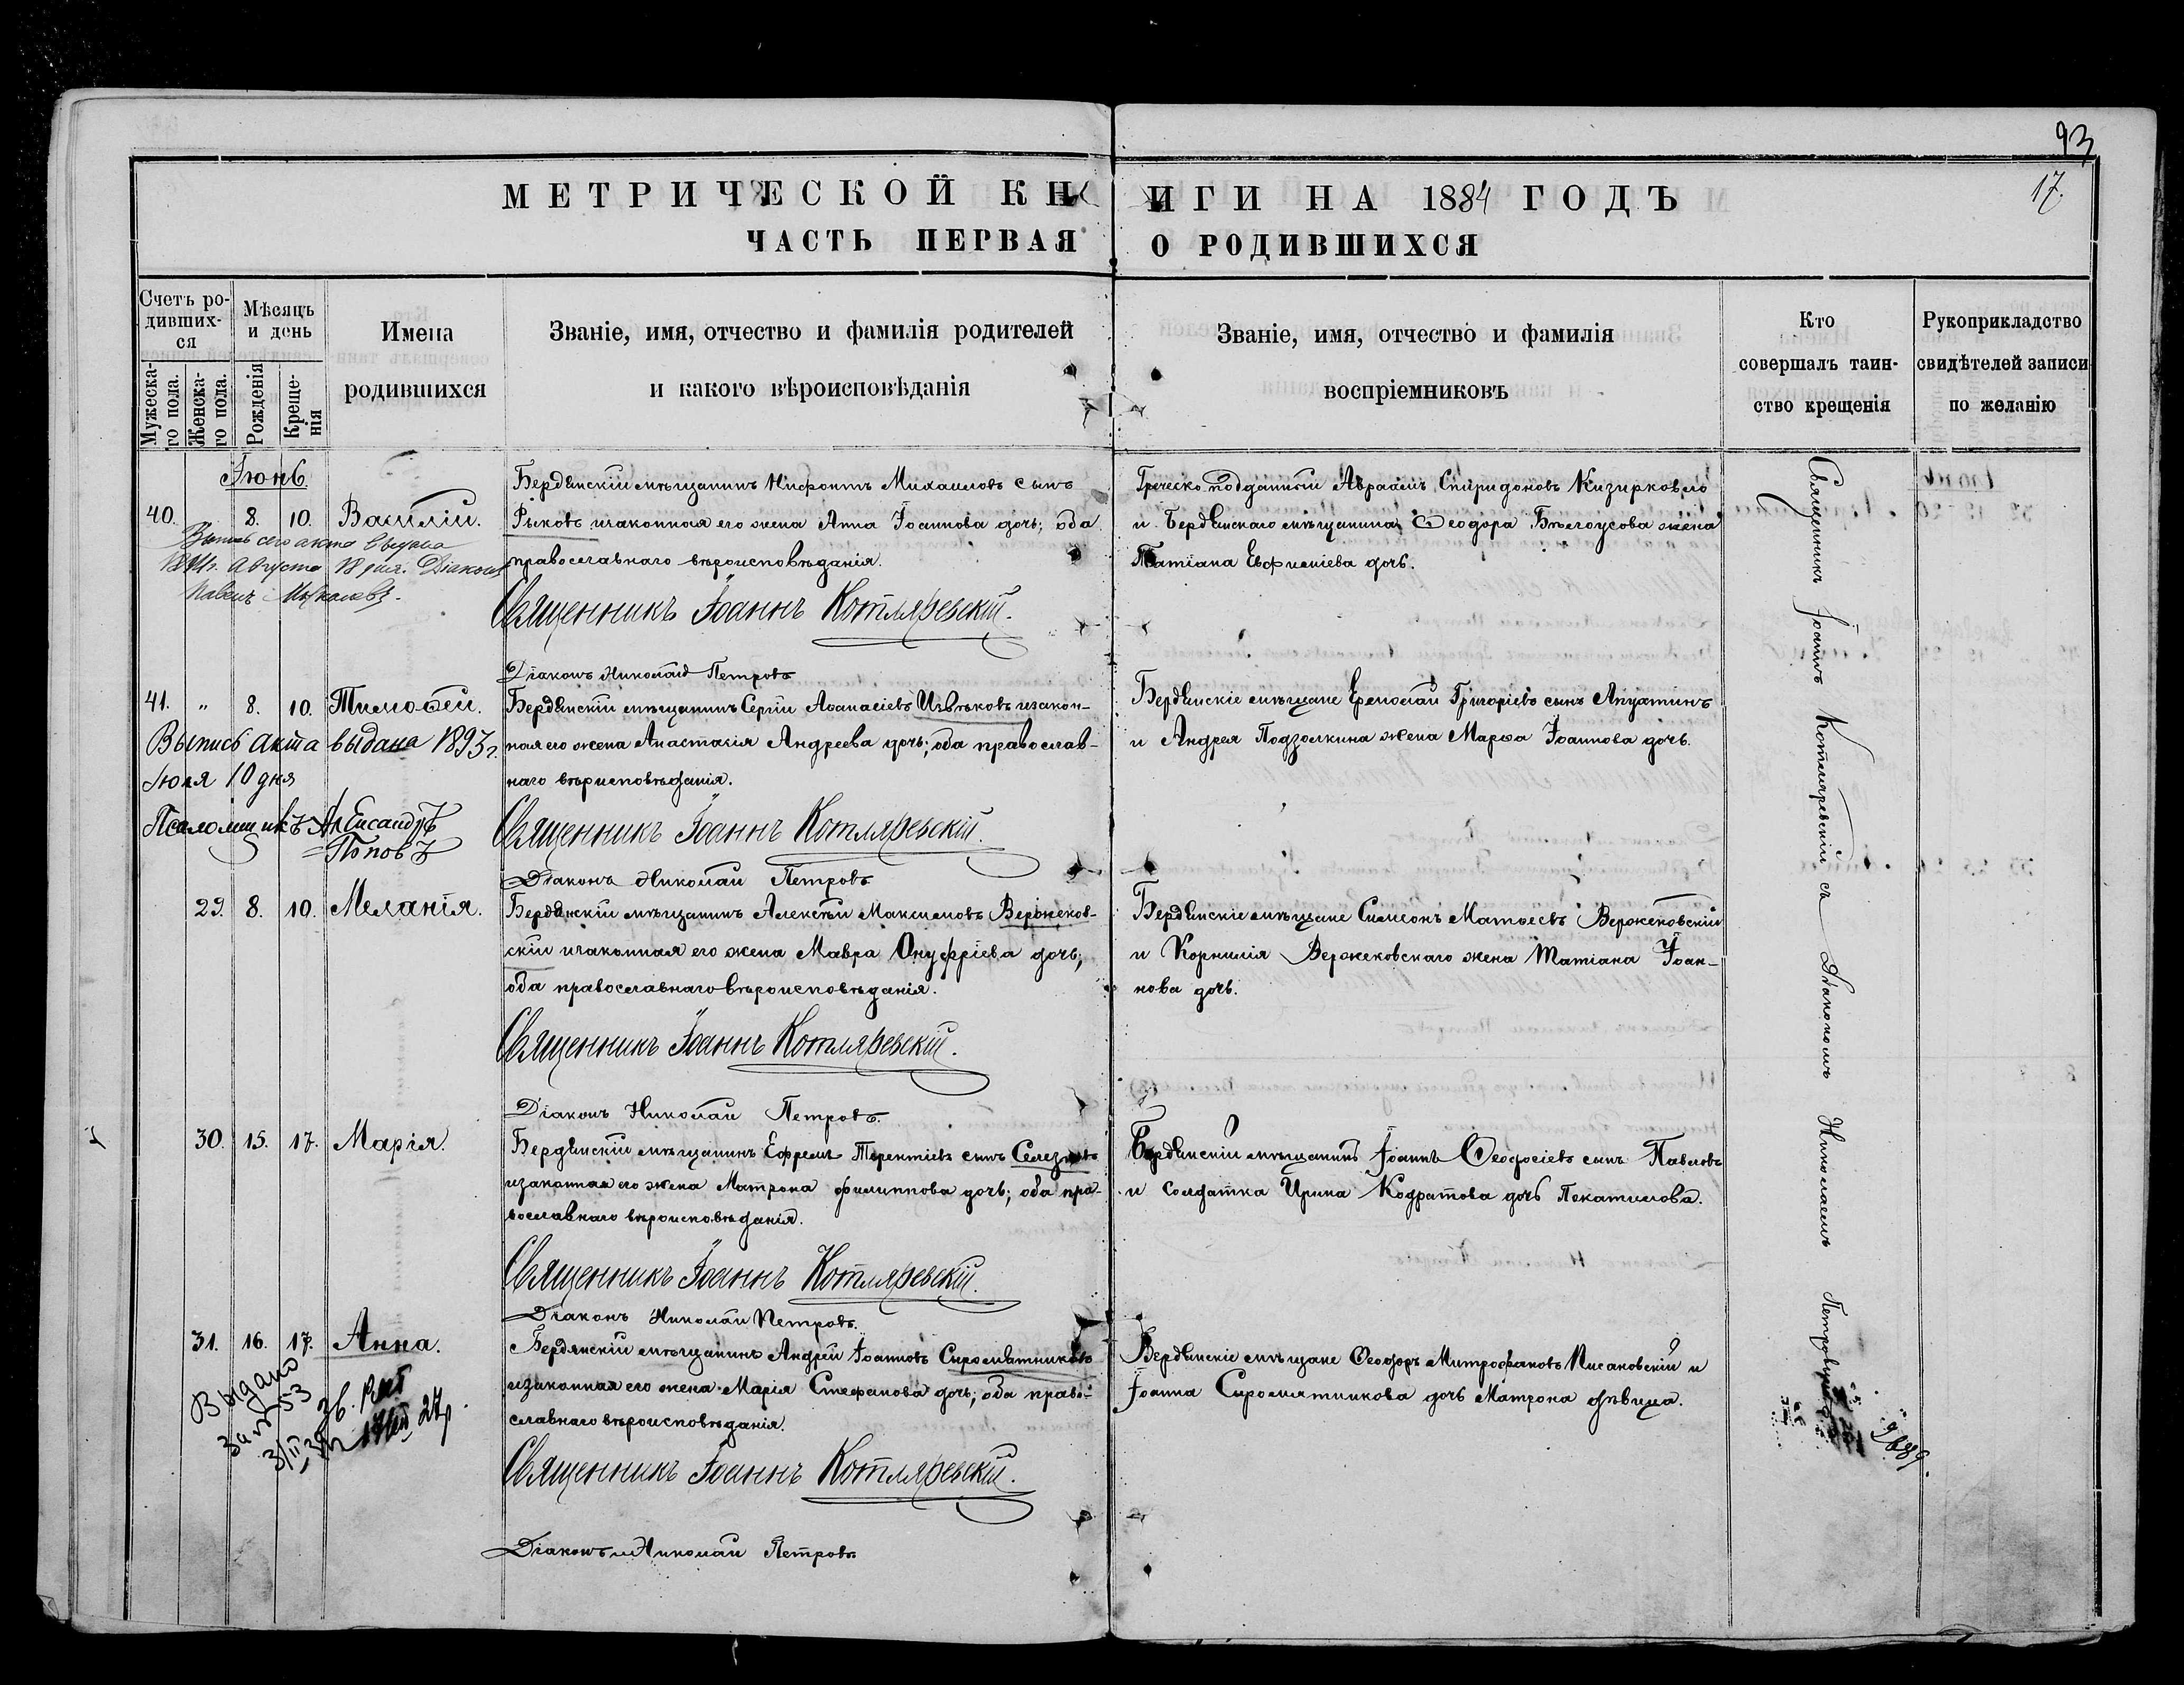 93
17.
МЕТРИЧЕСКОЙ КНИГИ НА 1884 ГОДЪ
ЧАСТЬ ПЕРВАЯ О РОДИВШИХСЯ
Счетъ родивших-
ся
Мужеска-
го пола.
Женска-
го пола.
Мѣсяцъ
и день
Рожденія
Креще-
нія
Имена
родившихся
Званіе, имя, отчество и фамилія родителей
и какого вѣроисповѣданія
Званіе, имя, отчество и фамилія
воспріемниковъ
Кто
совершалъ таин-
ство крещенія
Рукоприкладство
свидѣтелей записи
по желанію
Іюнь
40. 8. 10. Василій.
Бердянскій мѣщанинъ Нифонтъ Михаиловъ сынъ
Рыковъ изаконная его жена Анна Іоаннова дочь; оба
православнаго вѣроисповѣданія.
Священникъ Іоаннъ Котляревскій.
Діаконъ Николай Петровъ
Греческо-подданный Авраамъ Спиридоновъ
и Бердянскаго мѣщанина Ѳеодора Бѣлоусова жена
Татіана Евфиміева дочь.
сего акта
Августа 18 дня. Діаконъ
Павелъ
41. " 8. 10. Тимоѳей.
Бердянскій мѣщанинъ Сергій Аѳанасіевъ Извѣковъ изакон-
ная его жена Анастасія Андреева дочь; оба православ-
наго вѣрисповѣданія.
Священникъ Іоаннъ Котляревскій.
Діаконъ Николай Петровъ
Бердянскіе мѣщане Ермолай Григоріевъ сынъ Апухтинъ
и Андрея Подзолкина жена Марѳа Іоаннова дочь.
Выпись акта выдана 1893 г.
Іюля 10 дня
Псаломщикъ Александръ
Поповъ
29. 8. 10. Меланія.
Бердянскій мѣщанинъ Алексѣй Максимовъ Вержеков-
скій изаконная его жена Мавра Онуфріева дочь;
оба православнаго вѣроисповѣданія.
Священникъ Іоаннъ Котляревскій.
Діаконъ Николай Петровъ.
Бердянскіе мѣщане Симеонъ Матѳеевъ Вержековскій
и Корнилія Вержековскаго жена Татіана Іоан-
нова дочь.
30. 15. 17. Марія.
Бердянскій мѣщанинъ Ефремъ Терентіевъ сынъ Селезневъ
изаконная его жена Матрона Филиппова дочь; оба пра-
вославнаго вѣроисповѣданія.
Священникъ Іоаннъ Котляревскій.
Діаконъ Николай Петровъ.
Бердянскій мѣщанинъ Іоаннъ Ѳеодосіевъ сынъ Павловъ
и солдатка Ирина Кодратова дочь Пекатилова.
31. 16. 17. Анна.
Бердянскій мѣщанинъ Андрей Іоанновъ Сыромятниковъ
изаконная его жена Марія Стефанова дочь; оба право-
славнаго вѣроисповѣданія.
Священникъ Іоаннъ Котляревскій.
Діаконъ Николай Петровъ
Бердянскіе мѣщане Ѳеодоръ Митрофановъ Писаковскій и
Іоанна Сыромятникова дочь Матрона дѣвица.
Выдано
за № 53
Священникъ Іоаннъ Котляревскій съ Діакономъ Николаемъ Петровымъ